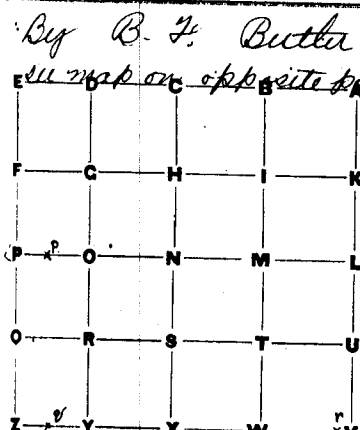 By B. F. Butler
see map on opposite
E D C B A
F G H I K
P p O N M L
Q R S T U
Z Y X W V
r